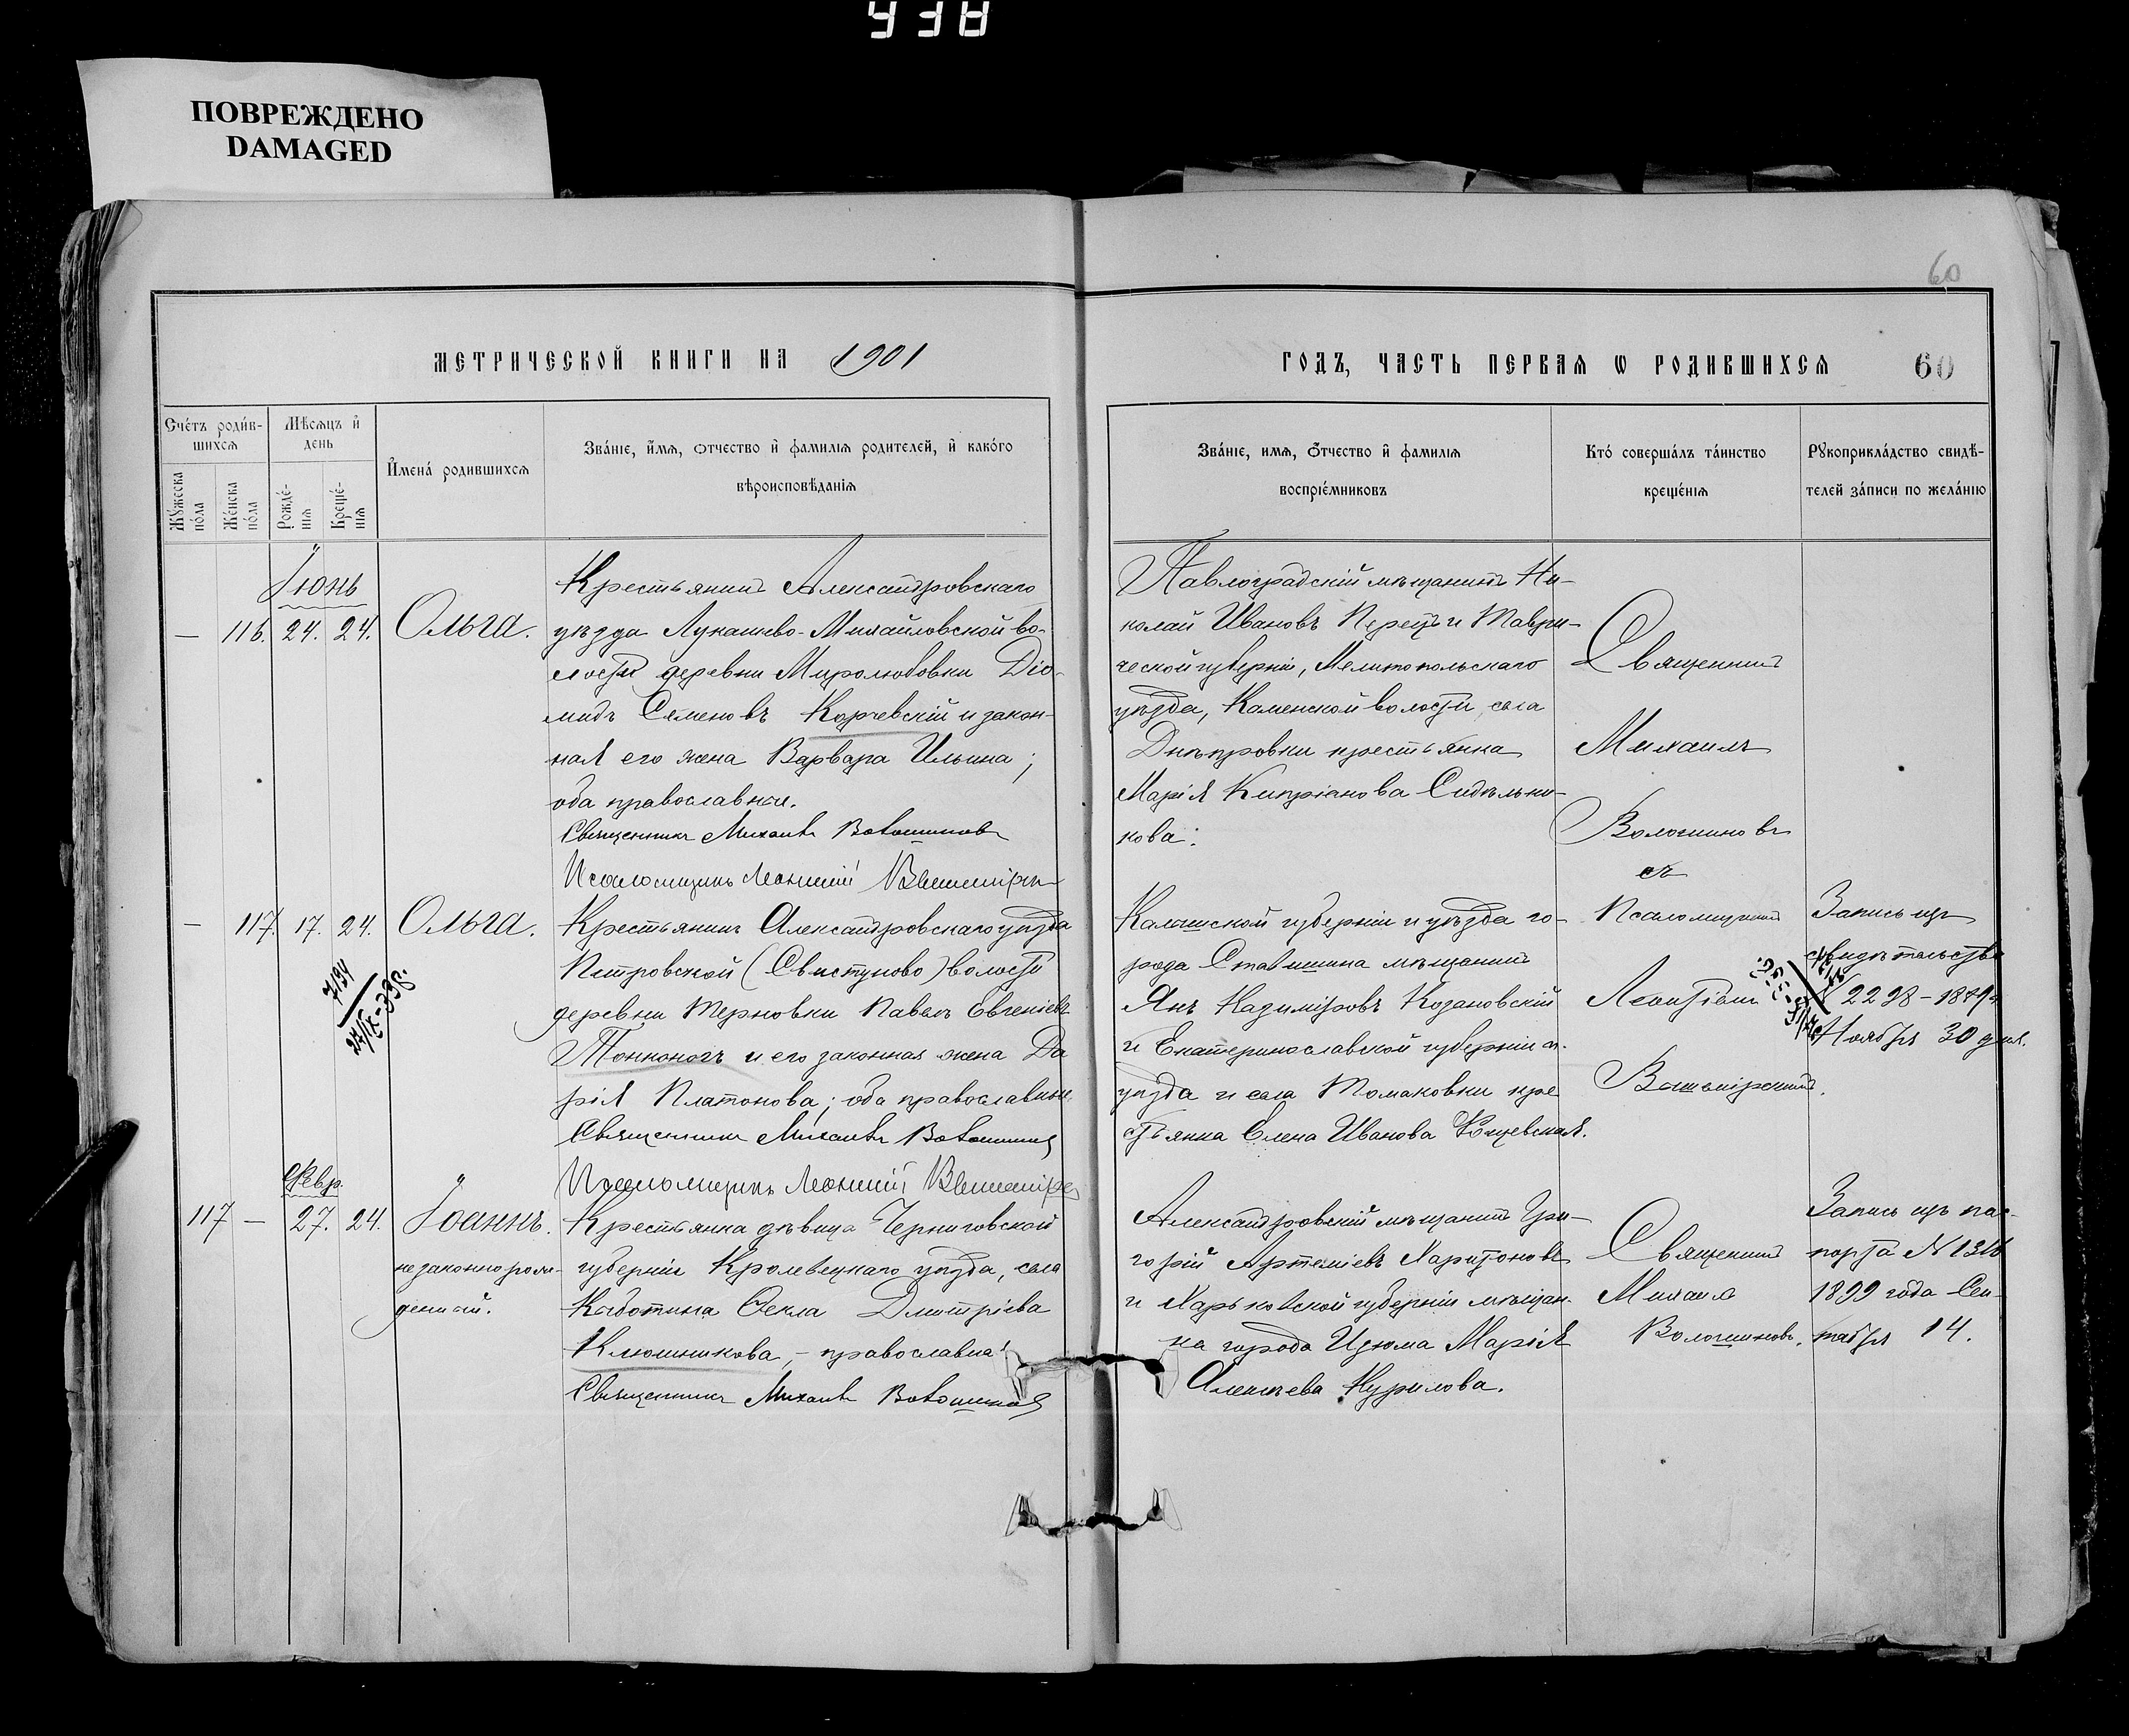 438
ПОВРЕЖДЕНО
DAMAGED
60
МЕТРИЧЕСКОЙ КНИГИ НА 1901
ГОДЪ, ЧАСТЬ ПЕРВАЯ Ѡ РОДИВШИХСѦ
60
Счетъ родив-
шихсѧ
Мѣсѧцъ и
день
Мужеска
пола
Женска
пола
Рожде-
ніѧ
Креще-
ніѧ
Имена родившихсѧ
Званіе, имѧ, отчество и фамиліѧ родителей, и какого
вѣроисповѣданіѧ
Званіе, имѧ, отчество и фамиліѧ
воспріемниковъ
Кто совершалъ таинство
крещеніѧ
Рукоприкладство свидѣ-
телей записи по желанію
Іюнь
— 116. 24. 24. Ольга.
Крестьянинъ Александровскаго
уѣзда Лукашево-Михайловской во-
лости деревни Миролюбовки Діо-
мидъ Семеновъ Корчевскій и закон-
ная его жена Варвара Ильина;
оба православные.
Священникъ Михаилъ Волошиновъ
Псаломщикъ Леонтій
Павлоградскій мѣщанинъ Ни-
колай Ивановъ Перецъ и Таври-
ческой губерніи, Мелитопольскаго
уѣзда, Каменской волости, села
Днѣпровки крестьянка
Марія Кипріанова Сидѣльни-
кова.
Священникъ
Михаилъ
Волошиновъ
съ
Псаломщикомъ
Леонтіемъ
— 117. 17. 24. Ольга.
7194
27/IX-338.
Крестьянинъ Александровскаго уѣзда
Петровской (Свистуново) волости
деревни Терновки Павелъ Евгеніевъ
Тонконогъ и его законная жена Да
рія Платонова; оба православные
Священникъ Михаилъ Волошиновъ
Псаломщикъ Леонтій
Калишской губерніи и уѣзда го-
рода Ставишина мѣщанинъ
Янъ Казиміровъ Козановскій
и Екатеринославской губерніи и
уѣзда и села Томаковки кре
стьянка Елена Иванова
Запись изъ
свидѣтельства
№ 2298 – 1879 г.
Ноября 30 дня.
Февр.
117 — 27. 24. Іоаннъ.
незаконнорож-
денный.
Крестьянка дѣвица Черниговской
губерніи Кролевецкаго уѣзда, села
Ѳекла Дмитріева
Клюшникова, – православна
Священникъ Михаилъ Волошиновъ
Александровскій мѣщанинъ Гри-
горій Артеміевъ Харитоновъ
и Харьковской губерніи мѣщан-
ка города Изюма Марія
Алексѣева Курилова.
Священникъ
Михаилъ
Волошиновъ.
Запись изъ пас-
порта № 1316
1899 года Сен-
тября 14.